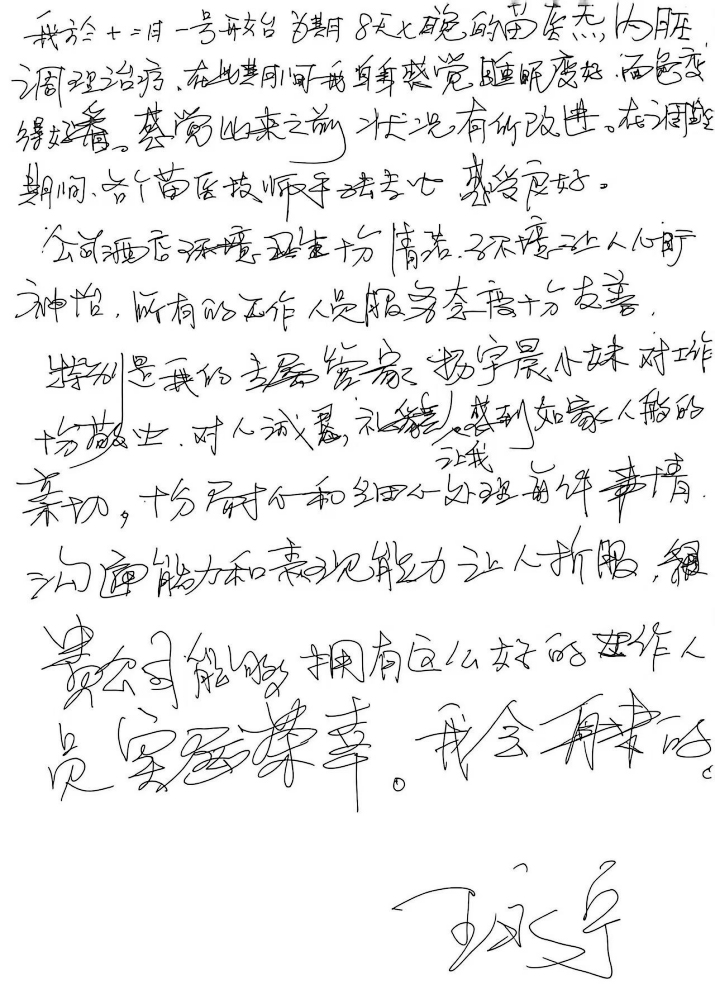 我于十二月一号开始为期8天七晚的苗医灸内脏
调理治疗、在此期间我身享感觉睡眠变好、面色变
得好看。感觉比来之前状况有所改进。在调理
期间、各个苗医技师手法专业 感受良好。
公司酒店环境卫生十分清洁、环境让人心旷
神怡、所有的工作人员服务态度十分友善、
特别是我的专属管家 杨宇晨小妹对工作
十分敬业、对人诚恳,礼貌让我感到如家人般的
亲切。十分耐心和细心处理每件事情、
沟通能力和表现能力让人折服、
贵公司能够拥有这么好的工作人
员实属荣幸。我会再来的。
王永宁